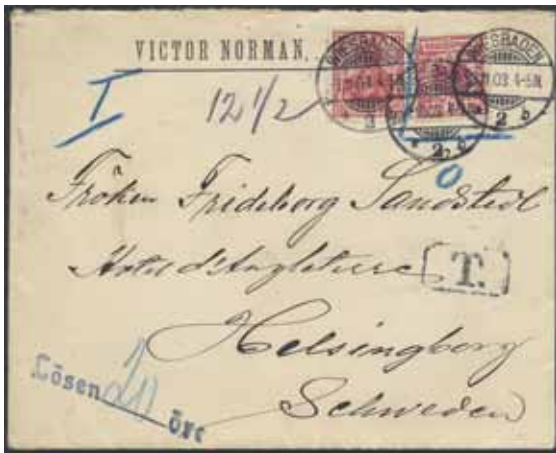 VICTOR NORMAN.
WIESBADEN
WIESBADEN
.03. 4-5N.
2 b
2 b
I
12 1/2
0
Fröken Frideborg Sandstedt
Hotel d'Angleterre
T.
Helsingborg
Schweden
Lösen 20 öre